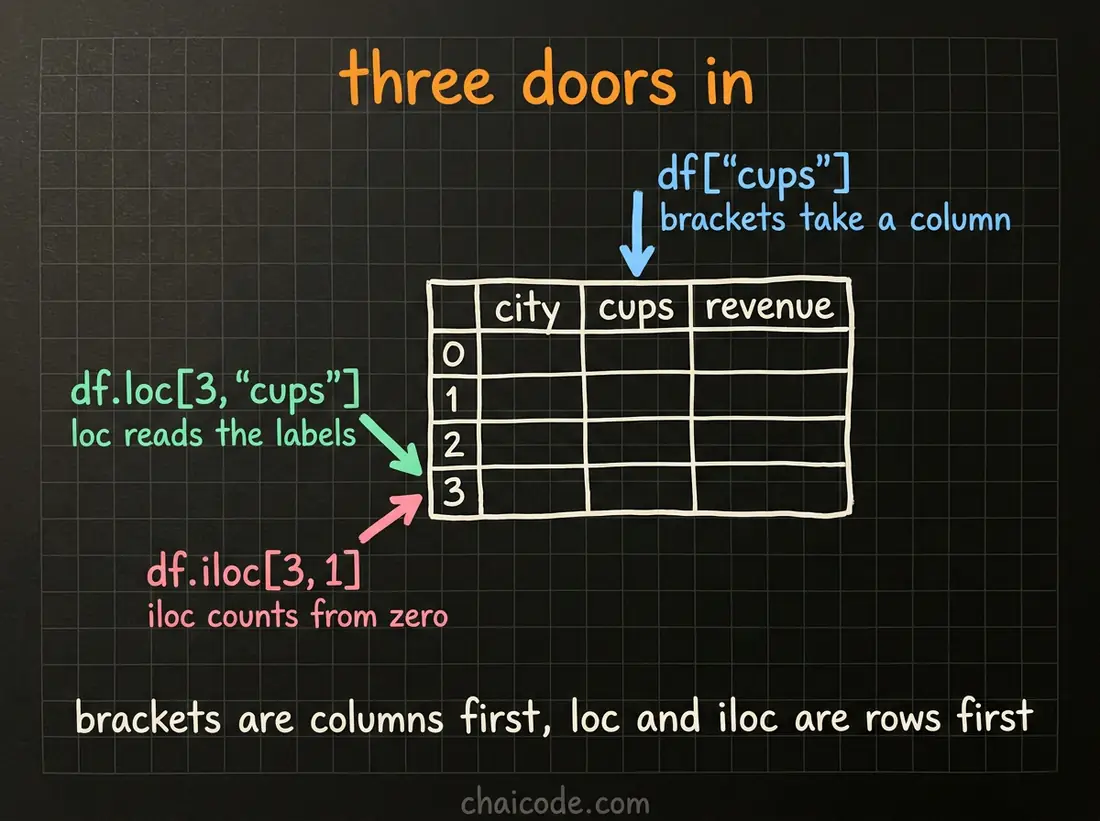 three doors in
df[“cups”]
brackets take a column
city cups revenue
0
1
2
3
df.loc[3, “cups”]
loc reads the labels
df.iloc[3, 1]
iloc counts from zero
brackets are columns first, loc and iloc are rows first
chaicode.com